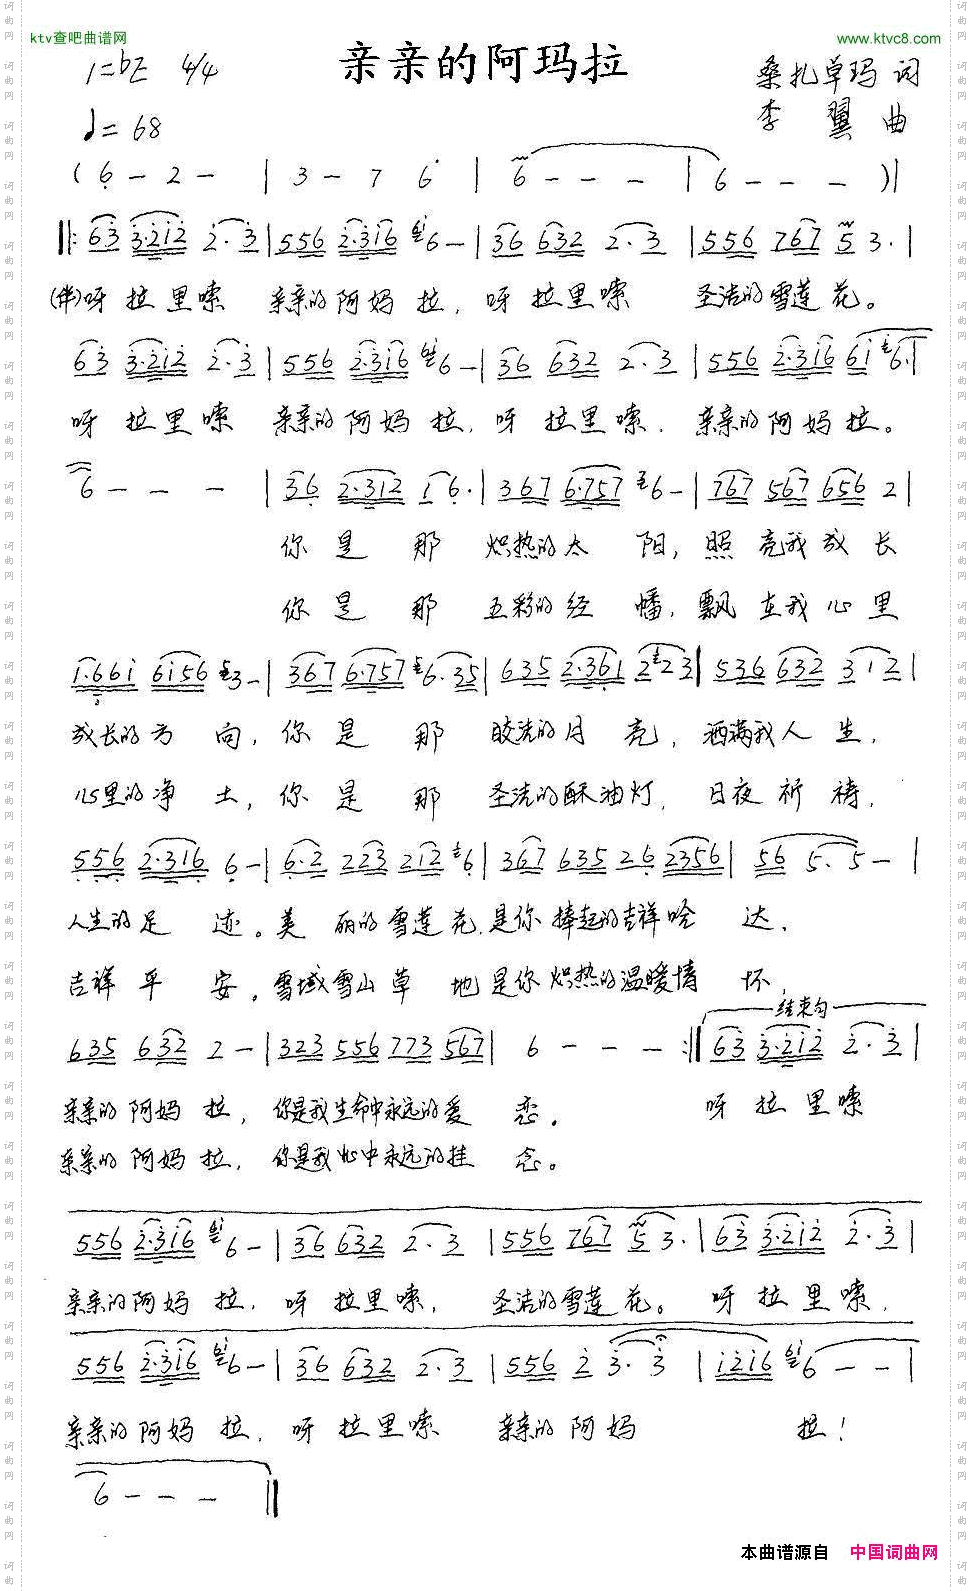 ktv查吧曲谱网 www.ktvc8.com
亲亲的阿玛拉
1=bE 4/4
桑扎卓玛 词
♩=68
李翼 曲
( 6 - 2 - | 3 - 7 6 | 6 - - - | 6 - - - )|
‖: 63 3·212 2·3 | 556 2·316 6 - | 36 632 2·3 | 556 767 5 3· |
(伴)呀拉里嗦 亲亲的阿妈拉，呀拉里嗦 圣洁的雪莲花。
63 3·212 2·3 | 556 2·316 6 - | 36 632 2·3 | 556 2·316 61 6· |
呀拉里嗦 亲亲的阿妈拉，呀拉里嗦，亲亲的阿妈拉。
6 - - - | 36 2·312 1 6· | 367 6·757 6 - | 767 567 656 2 |
你是那 炽热的太阳，照亮我成长
你是那 五彩的经幡，飘在我心里
1·661 6156 3 - | 367 6·757 6·35 | 635 2·361 2 223 | 536 632 312 |
成长的方向，你是那 皎洁的月亮，洒满我人生，
心里的净土，你是那 圣洁的酥油灯，日夜祈祷，
556 2·316 6 - | 6·2 223 212 6 | 367 635 26 2356 | 56 5· 5 - |
人生的足迹。美丽的雪莲花，是你捧起的吉祥哈达，
吉祥平安。雪域雪山草地是你炽热的温暖情怀，
结束句
635 632 2 - | 323 556 773 567 | 6 - - - :‖ 63 3·212 2·3 |
亲亲的阿妈拉，你是我生命中永远的爱恋。 呀拉里嗦
亲亲的阿妈拉，你是我心中永远的挂念。
556 2·316 6 - | 36 632 2·3 | 556 767 5 3· | 63 3·212 2·3 |
亲亲的阿妈拉，呀拉里嗦，圣洁的雪莲花。呀拉里嗦，
556 2·316 6 - | 36 632 2·3 | 556 2 3· 3 | 1216 6 - - |
亲亲的阿妈拉，呀拉里嗦 亲亲的阿妈 拉！
6 - - - ‖
本曲谱源自 中国词曲网